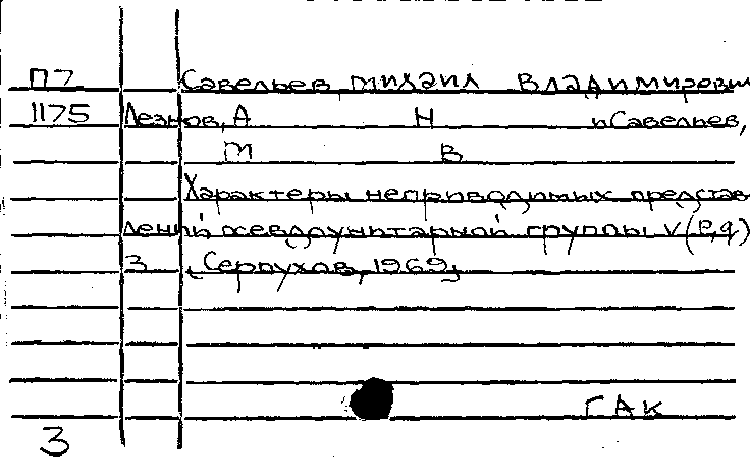 П7 Савельев, Михаил Владимирович
1175 Лезнов, А Н и Савельев,
М В
Характеры неприводимых представ
лений псевдоунитарной группы V(p,q)
3 [Серпухов, 1969]
ГАК
3